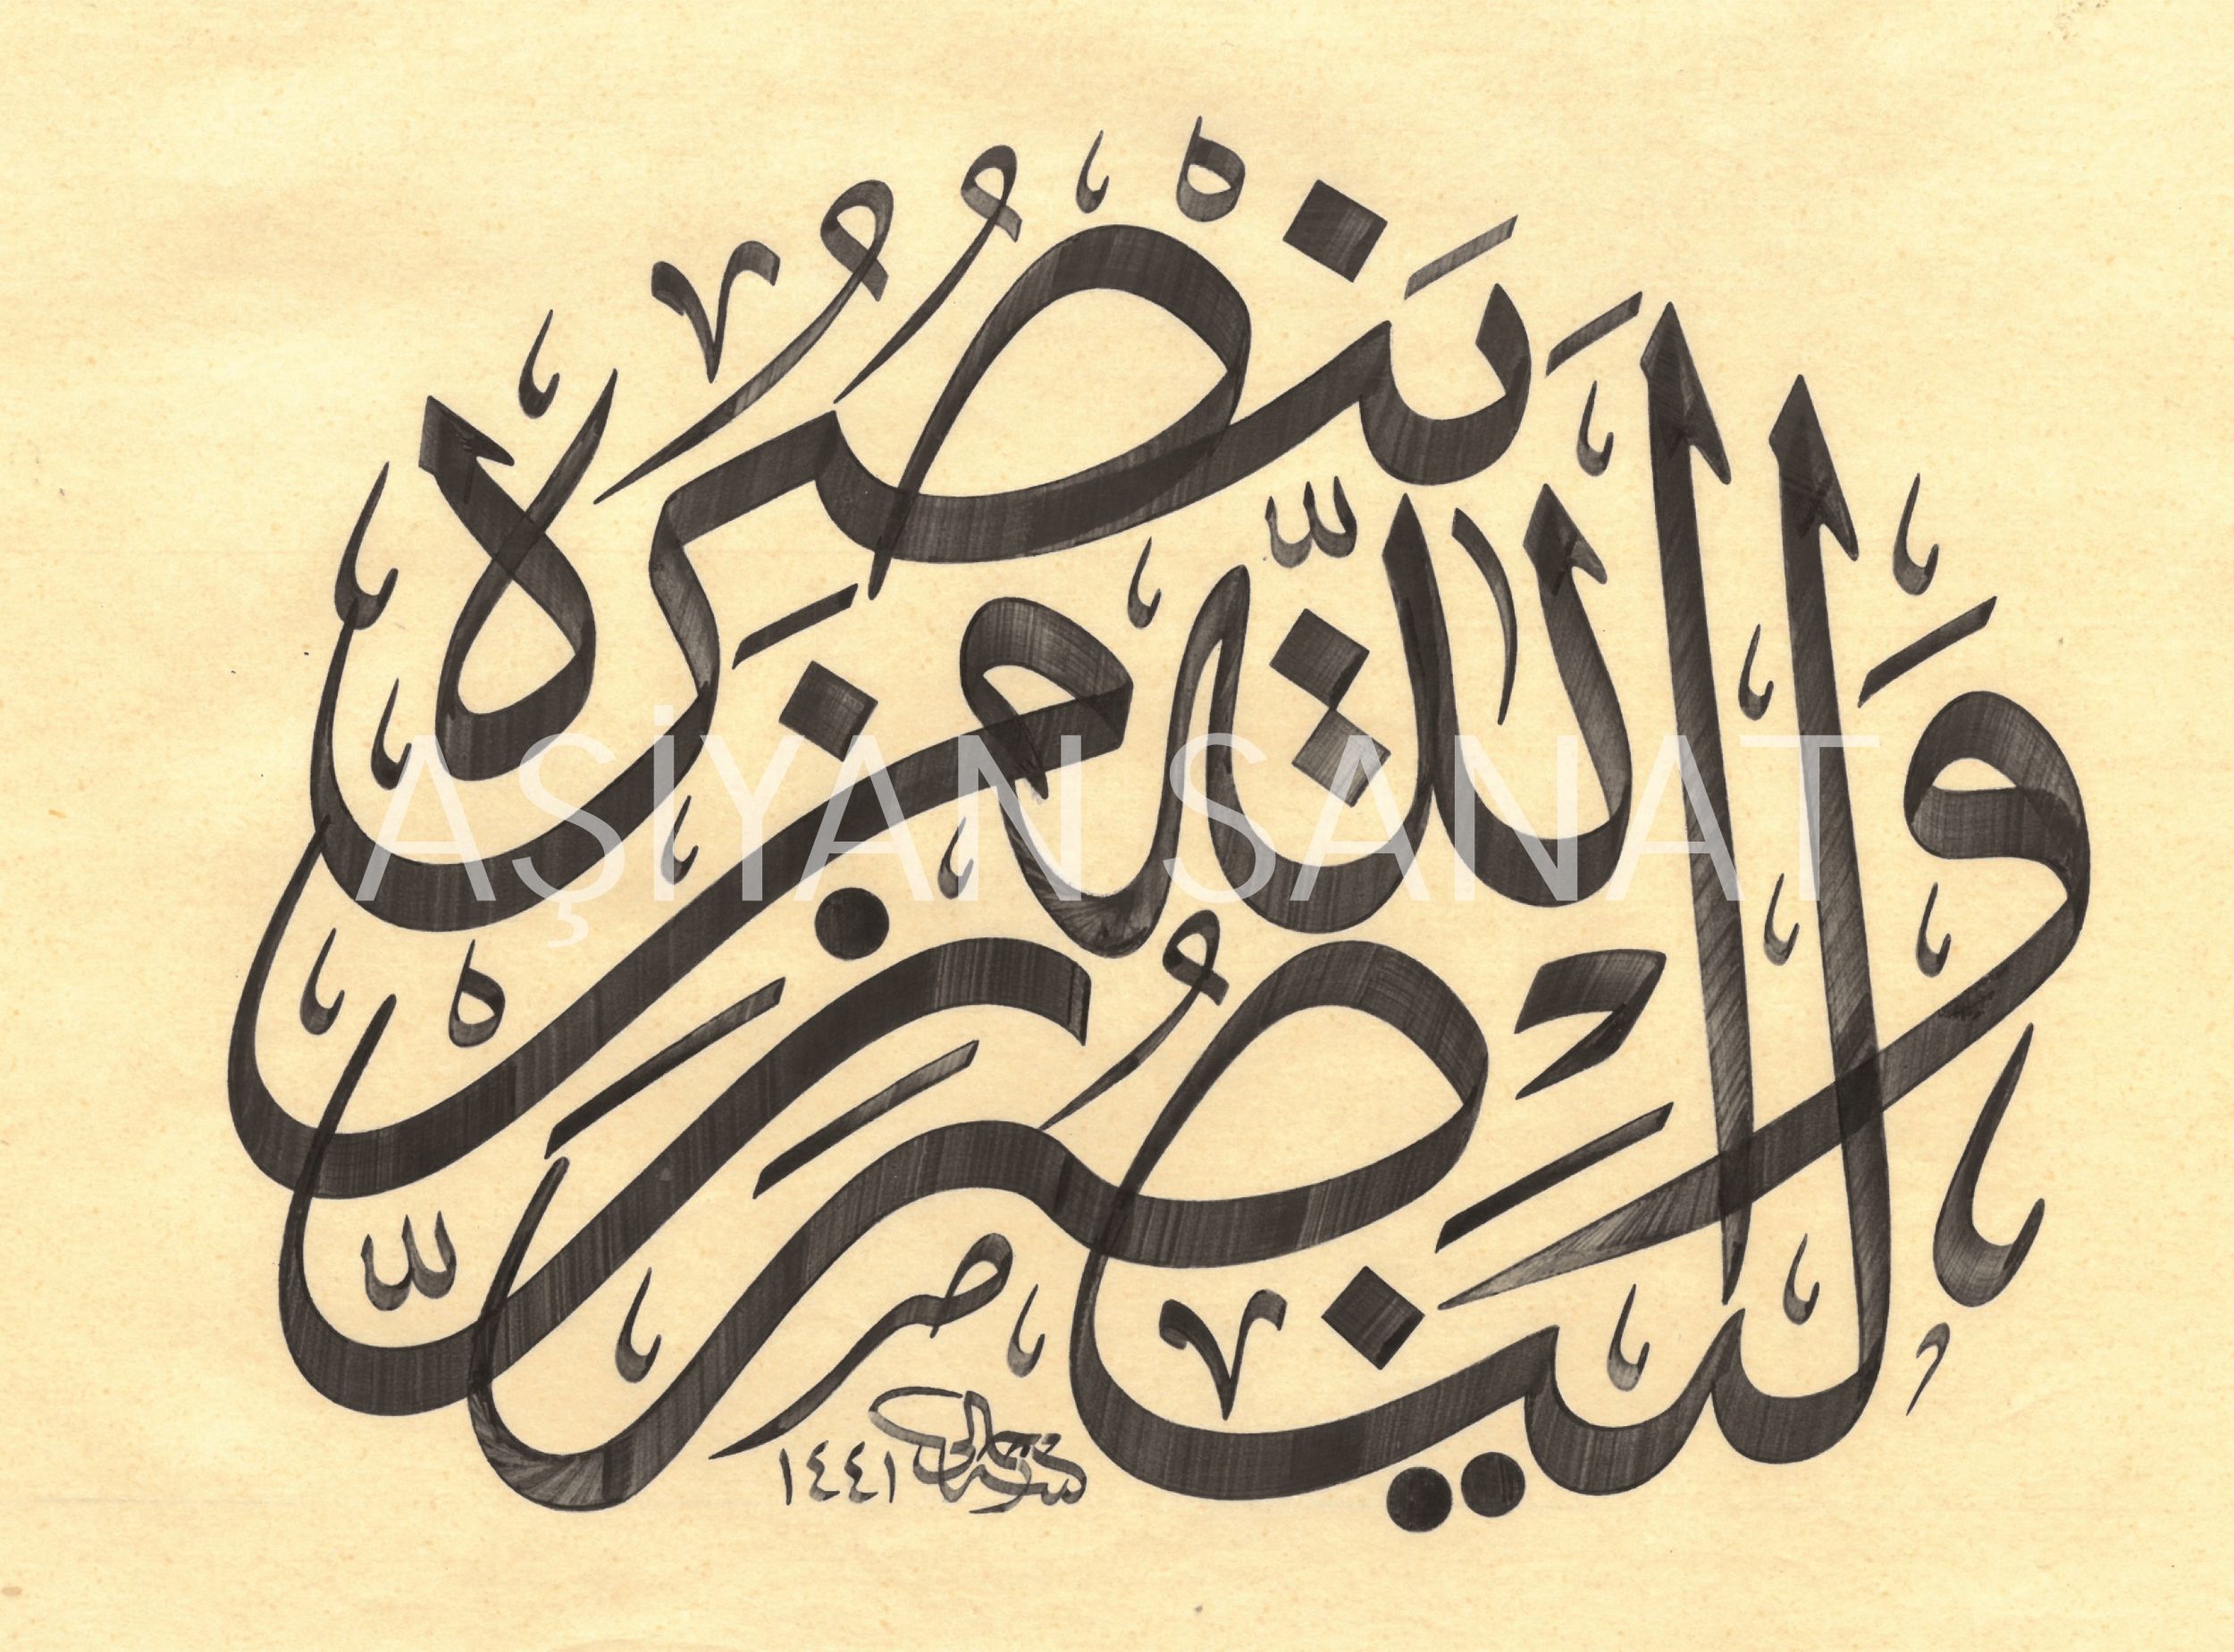 وَلَيَنْصُرَنَّ اللّٰهُ مَنْ يَنْصُرُهُ
١٤٤١
AŞİYAN SANAT